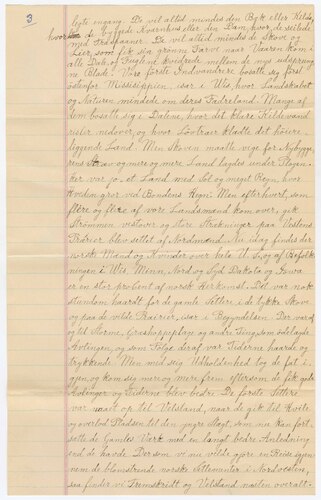 3
legte engang. De vil altid mindes den Bæk eller Kilde,
hvor de byggede Kværnhus eller den Dam, hvor de seilede
med Træbaaner. De vil altid mindes de Skove og
Lier, som fik sin grønne Farve naar Vaaren kom i
alle Dale, og Fuglene kvidrede mellem de nye udsprung-
ne Blade. Vore første Indvandrere bosatte sig først
østenfor Mississippien, især i Wis, hvor Landskabet
og Naturen mindede om deres Fædreland. Mange af
dem bosatte sig i Dalene, hvor det klare Kildevand
risler nedover, og hvor Løvtræer klædte det høiere-
liggende Land. Men Skoven maatte vige for Nybygge-
rens og mere og mere Land lagdes under Plogen.
Her var jo et Land med Sol og meget Regn hvor
Hveden gror ved Bondens Hegn. Men efterhvert, som
flere og flere af vore Landsmænd kom over, gik
Strømmen vestover og store Strækninger paa Vestens
Prærier blev settet af Nordmænd. Nu idag findes der
norske Mænd og Kvinder over hele U. S., og af Befolk-
ningen i Wis, Minn, Nord og Syd Dakota og Iowa
er en stor procent af norsk Herkomst. Det var nok
stundom haardt for de gamle Settlere i de tykke Skove
og paa de vilde Prærier, især i Begyndelsen. Der var of-
te Storme, Græshoppeplage og andre Ting, som ødelagde
Avlingen, og som Følge deraf var Tiderne haarde og
trykkende. Men med seig Udholdenhed tog de fat i-
gjen, og kom sig mere og mere frem eftersom de fik gode
Avlinger og Tiderne blev bedre. De første Settlere
var naaet op til Velstand, naar de gik til Hvile
og overlod Pladsen til den yngre Slægt, som nu kan fort-
sætte de Gamles Værk med en langt bedre Anledning
end de havde. Dersom vi nu vilde, gjøre en Reise igjen-
nem de blomstrende norske Settlementer i Nordvesten,
saa finder vi Fremskridt og Velstand næsten overalt.